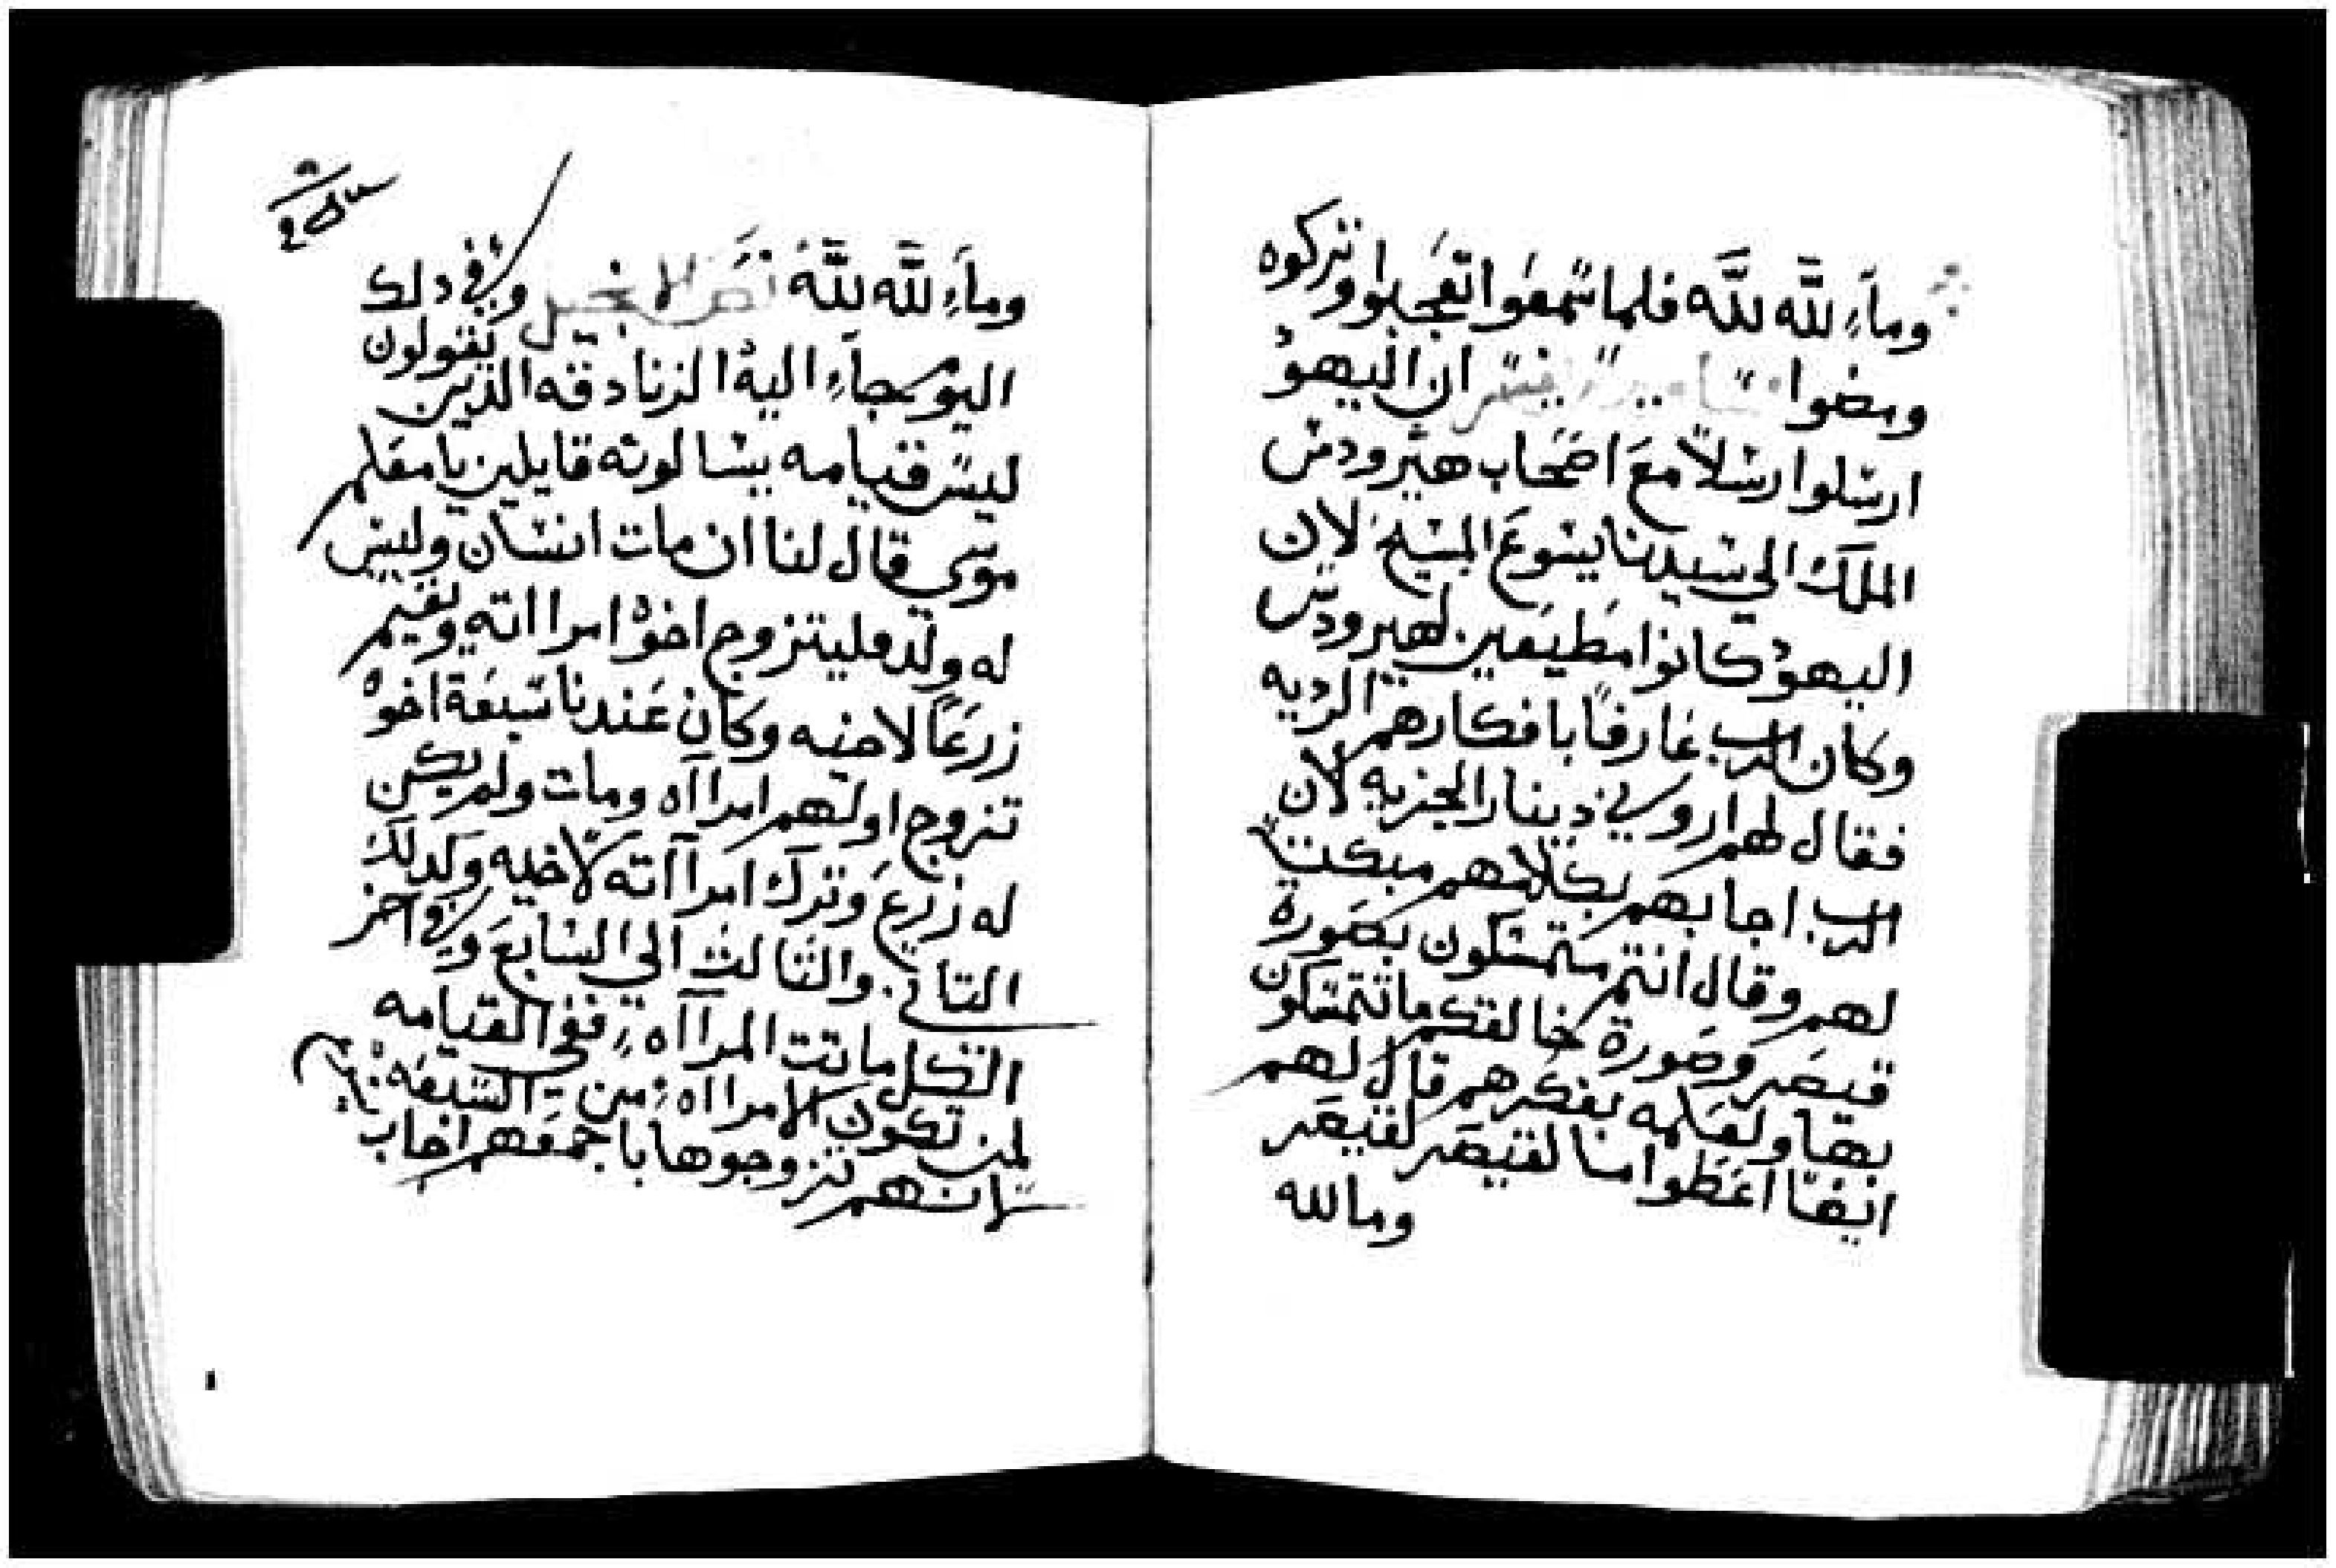 ومآء لله لله فلما سمعوا تعجبوا وتركوه
ومضوا ان اليهود
ارسلوا رسلاً مع اصحاب هيرودس
الملك الي سيدنا يسوع المسيح لان
اليهود كانوا مطيعين لهيرودس
وكان الرب عارفاً بافكارهم الرديه
فقال لهم اروني دينار الجزيه لان
الرب اجابهم بكلامهم مبكتاً
لهم وقال انتم متمسكون بصورة
قيصر وصورة خالقكم ما تتمسكون
بها ولعلمه بفكرهم قال لهم
ايضا اعطوا ما لقيصر لقيصر
وما لله
ومآء لله لله نص الانجيل وفي دلك
اليوم جآء اليه الزنادقه الدين يقولون
ليس قيامه يسالونه قايلين يا معلم
موسي قال لنا ان مات انسان وليس
له ولد فليتزوج اخوه امرااته ويقيم
زرعاً لاخيه وكان عندنا سبعة اخوه
تزوج اولهم امرااه ومات ولم يكن
له زرع وترك امرااته لاخيه وكدلك
التاني والتالت الي السابع وفي اخر
الكل ماتت المرااه ففي القيامه
لمن تكون الامرااه من السبعه
لانهم تزوجوها باجمعهم اجاب